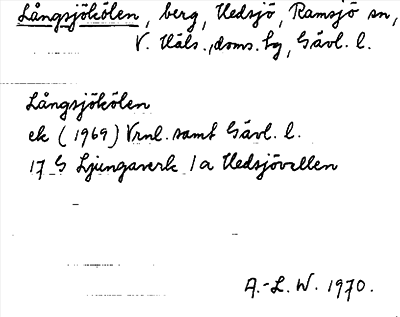 Långsjökölen, berg, Hedsjö, Ramsjö sn,
V. Häls., doms. bg, Gävl. l.
Långsjökölen
ek (1969) Vrnl. samt Gävl. l.
17 G Ljungaverk 1a Hedsjövallen
A.-L. W. 1970.